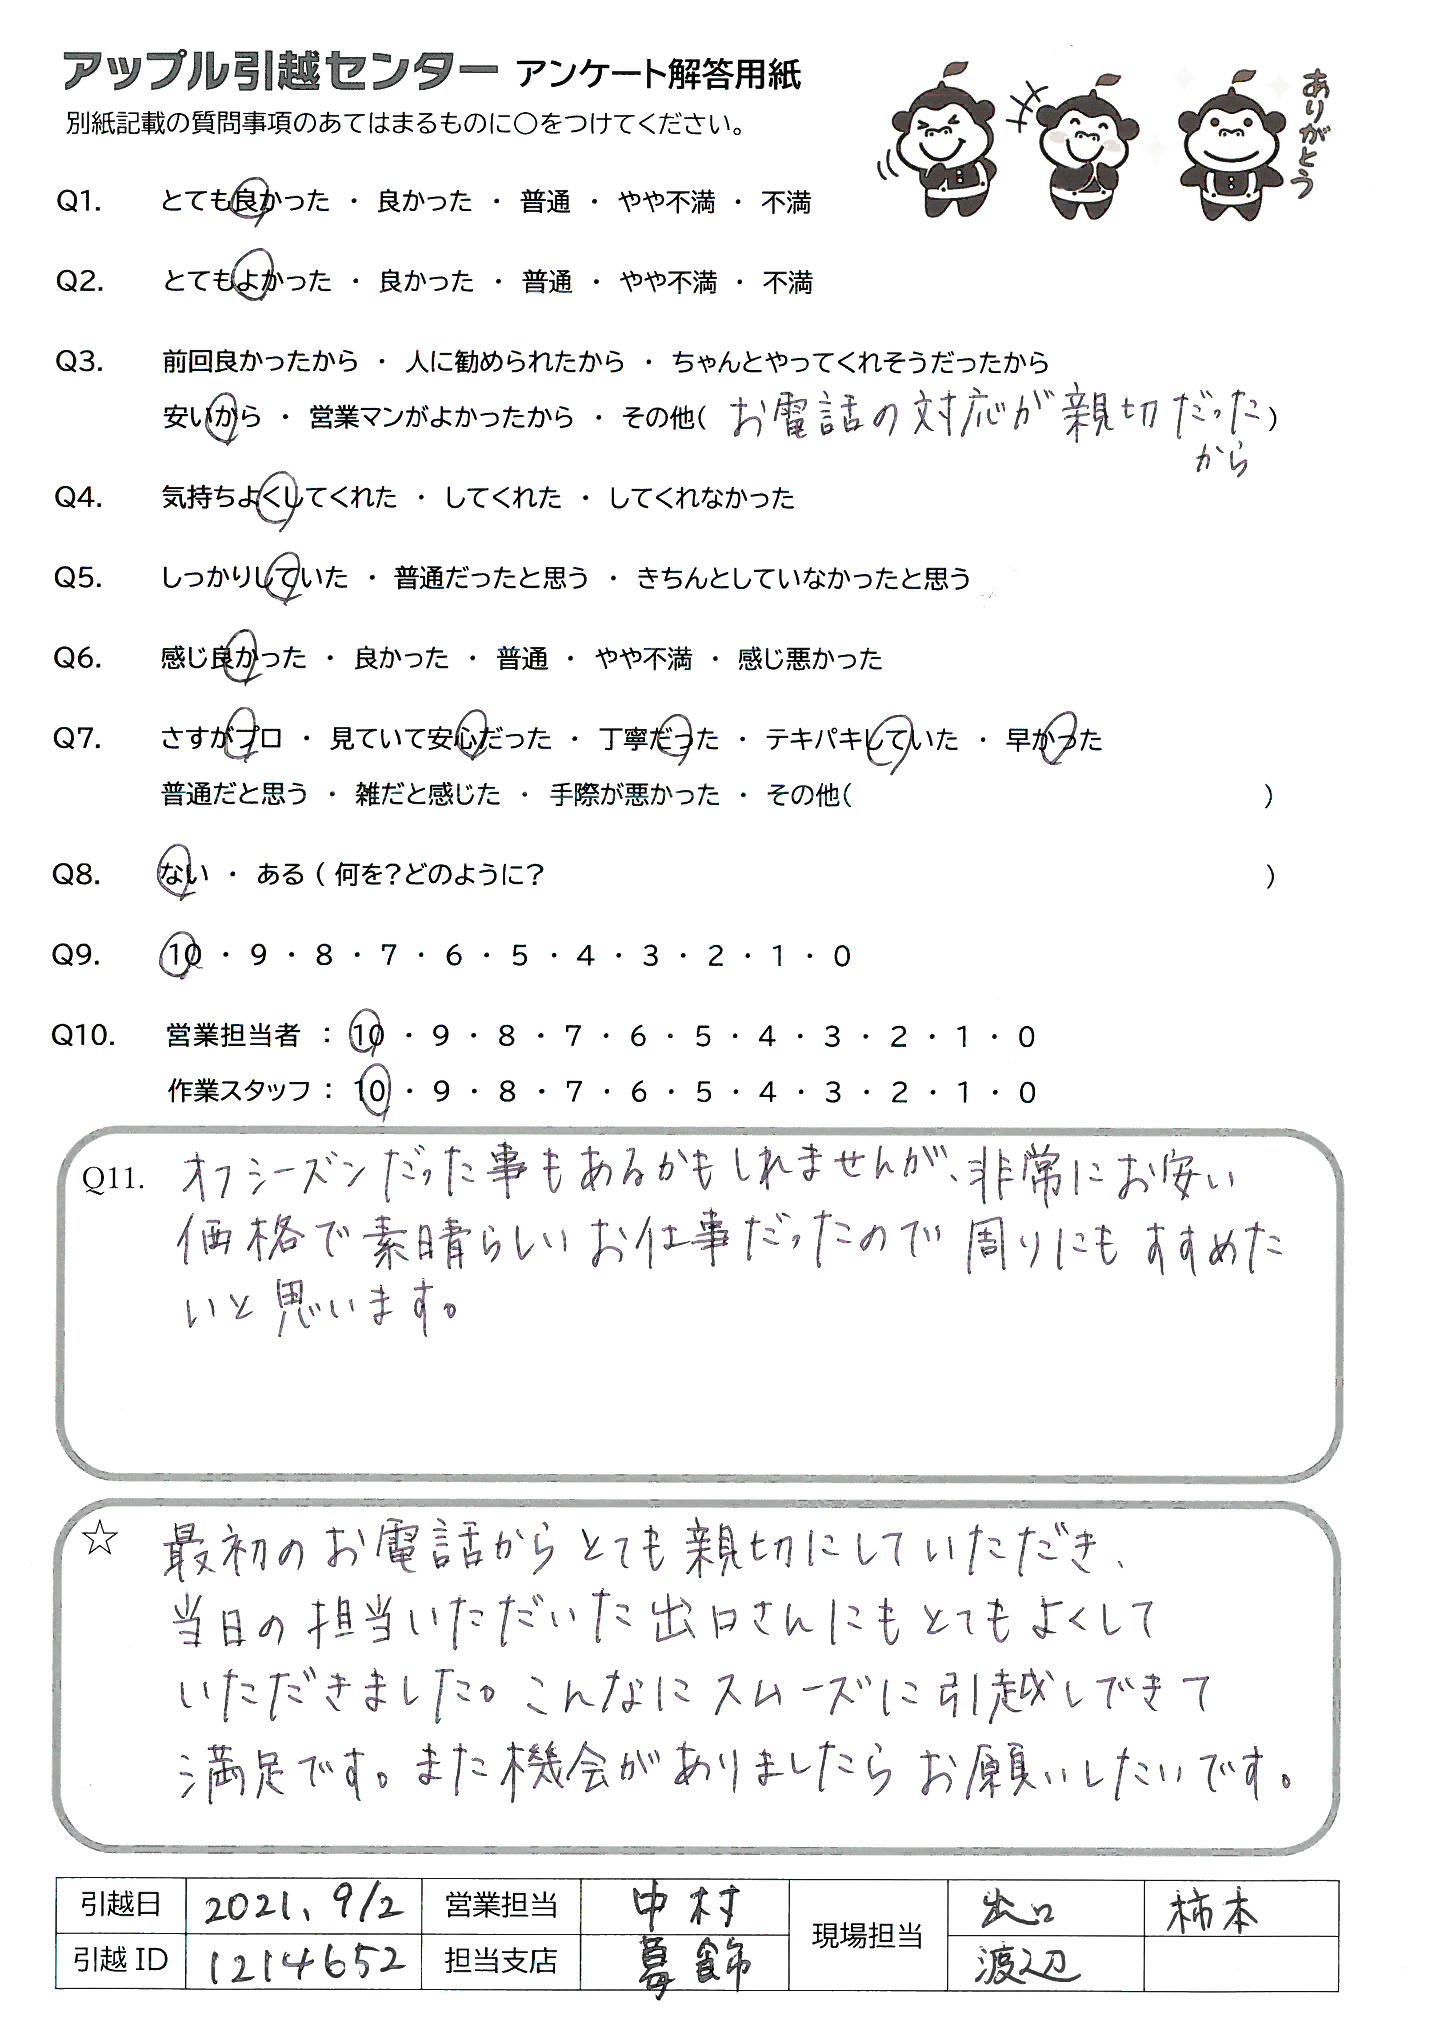 アップル引越センター アンケート解答用紙
別紙記載の質問事項のあてはまるものに〇をつけてください。
ありがとう
Q1. とても良かった ・ 良かった ・ 普通 ・ やや不満 ・ 不満
Q2. とてもよかった ・ 良かった ・ 普通 ・ やや不満 ・ 不満
Q3. 前回良かったから ・ 人に勧められたから ・ ちゃんとやってくれそうだったから
安いから ・ 営業マンがよかったから ・ その他( お電話の対応が親切だった )
から
Q4. 気持ちよくしてくれた ・ してくれた ・ してくれなかった
Q5. しっかりしていた ・ 普通だったと思う ・ きちんとしていなかったと思う
Q6. 感じ良かった ・ 良かった ・ 普通 ・ やや不満 ・ 感じ悪かった
Q7. さすがプロ ・ 見ていて安心だった ・ 丁寧だった ・ テキパキしていた ・ 早かった
普通だと思う ・ 雑だと感じた ・ 手際が悪かった ・ その他( )
Q8. ない ・ ある ( 何を?どのように? )
Q9. 10 ・ 9 ・ 8 ・ 7 ・ 6 ・ 5 ・ 4 ・ 3 ・ 2 ・ 1 ・ 0
Q10. 営業担当者 : 10 ・ 9 ・ 8 ・ 7 ・ 6 ・ 5 ・ 4 ・ 3 ・ 2 ・ 1 ・ 0
作業スタッフ : 10 ・ 9 ・ 8 ・ 7 ・ 6 ・ 5 ・ 4 ・ 3 ・ 2 ・ 1 ・ 0
Q11. オフシーズンだった事もあるかもしれませんが、非常にお安い
価格で素晴らしいお仕事だったので周りにもすすめた
いと思います。
☆ 最初のお電話からとても親切にしていただき、
当日の担当いただいた出口さんにもとてもよくして
いただきました。こんなにスムーズに引越しできて
満足です。また機会がありましたらお願いしたいです。
引越日 2021、9/2 営業担当 中村 現場担当 出口 柿本
引越ID 1214652 担当支店 渡辺